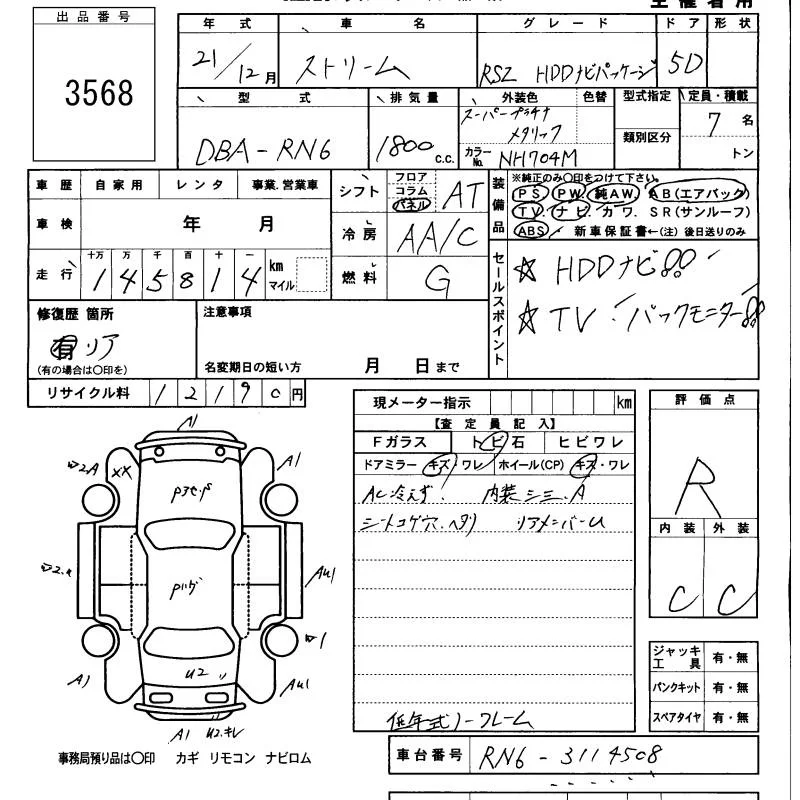 出品番号
3568
年式 車名 グレード ドア 形状
21/12月 ストリーム RSZ HDDナビパッケージ 5D
型式 排気量 外装色 色替 型式指定 定員・積載
DBA-RN6 1800 c.c. スーパープラチナ
メタリック
カラーNo. NH704M
類別区分
7名
トン
車歴 自家用 レンタ 事業.営業車
車検 年 月
走行 十万 万 千 百 十 一
1 4 5 8 1 4 km
マイル
シフト フロア
コラム
パネル
AT
冷房 AA/C
燃料 G
装備品
※純正のみ〇印をつけて下さい。
PS PW 純AW. AB(エアバック)
TV. ナビ. カワ. SR(サンルーフ)
ABS 新車保証書←(注) 後日送りのみ
セールスポイント
☆ HDDナビ!!
☆ TV バックモニター!!
修復歴 箇所
有 リア
(有の場合は〇印を)
注意事項
名変期日の短い方 月 日まで
リサイクル料 12190円
現メーター指示 km
【査定員記入】
Fガラス トビ石 ヒビワレ
ドアミラー キズ・ワレ ホイール(CP) キズ・ワレ
AC冷えず. 内装シミ.A
シートコゲ穴.ヘタリ リアメンバーU
低年式ノークレーム
評価点
R
内装 外装
C C
ジャッキ
工具 有・無
パンクキット 有・無
スペアタイヤ 有・無
A1
2A XX
A1
AU1
A1
U2
AU1
A1 U2.キレ
事務局預り品は〇印 カギ リモコン ナビロム
車台番号 RN6-3114508